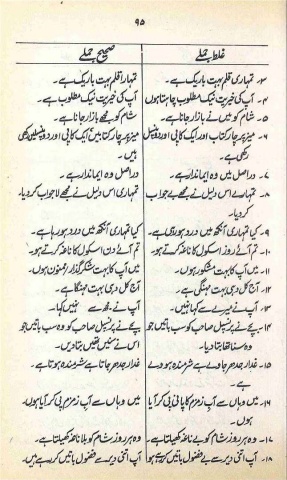 ۹۵
غلط جملے صحیح جملے
۳۔ تمہاری قلم بہت باریک ہے۔ تمہارا قلم بہت باریک ہے۔
۴۔ آپ کی خیریت نیک مطلوب چاہتا ہوں آپ کی خیریت نیک مطلوب ہے۔
۵۔ شام کو میں نے بازار جانا ہے۔ شام کو مجھے بازار جانا ہے۔
۶۔ میز پر چار کتاب اور ایک کاپی اور دو پنسل میز پر چار کتابیں ایک کاپی اور دو پنسلیں رکھی
رکھی ہے۔ ہیں۔
۷۔ دراصل میں وہ ایماندار ہے۔ دراصل وہ ایماندار ہے۔
۸۔ تمہرے اس دلیل نے مجھے بے جواب تمہاری اس دلیل نے مجھے لاجواب کر دیا۔
کر دیا۔
۹۔ کیا تمہاری آنکھ میں درد ہو رہی ہے۔ کیا تمہاری آنکھ میں درد ہو رہا ہے۔
۱۰۔ تم آئے روز اسکول کا ناغہ کرتے ہو۔ تم آئے دن اسکول کا ناغہ کرتے ہو۔
۱۱۔ میں آپ کا بہت مشکور ہوں۔ میں آپ کا بہت شکر گزار / ممنون ہوں۔
۱۲۔ آج کل دہی بہت مہنگی ہے۔ آج کل دہی بہت مہنگا ہے۔
۱۳۔ آپ نے میرے سے کہا نہیں۔ آپ نے مجھ سے نہیں کہا۔
۱۴۔ بچے نے پرنسپل صاحب کو سب باتیں جو بچے نے پرنسپل صاحب کو وہ سب باتیں جو
وہ سنا تھا بتا دیا۔ اس نے سنیں تھیں بتا دیں۔
۱۵۔ غدار جدھر جاوے ہے شرمندہ ہووے غدار جدھر جاتا ہے شرمندہ ہوتا ہے۔
ہے۔
۱۶۔ میں وہاں سے آب زمزم کا پانی پی کر آیا میں وہاں سے آبِ زمزم پی کر آیا ہوں۔
ہوں۔
۱۷۔ وہ ہر روز شام کو بے ناغہ کھیلتا ہے۔ وہ ہر روز شام کو بلا ناغہ کھیلتا ہے۔
۱۸۔ آپ اتنی دیر سے بے فضول باتیں کر رہے ہو آپ اتنی دیر سے فضول باتیں کر رہے ہیں۔